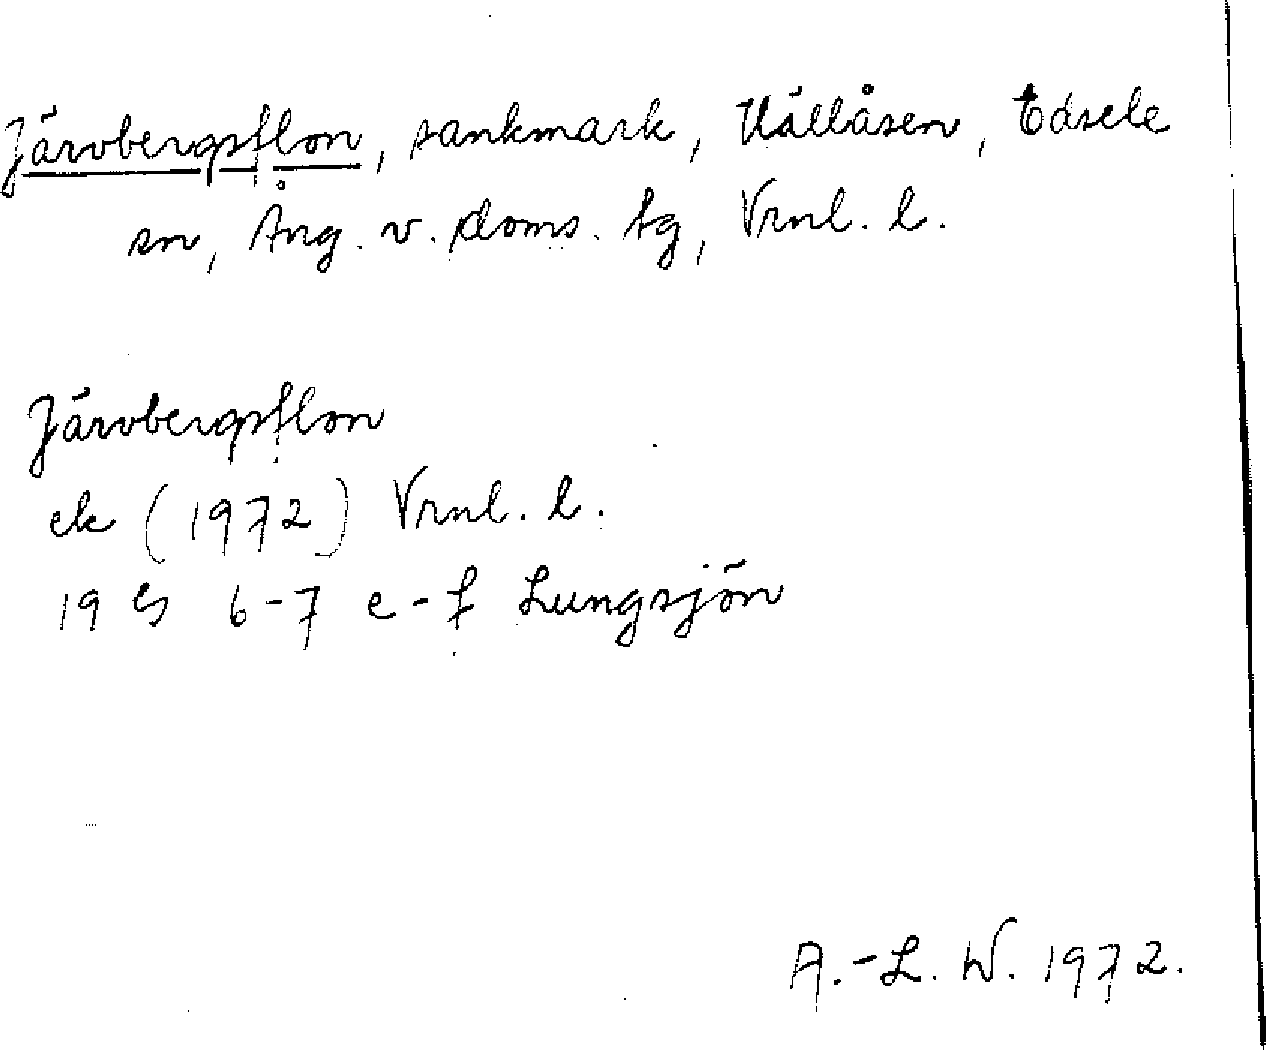 Järvbergsflon, sankmark, Hällåsen, Edsele
sn, Ång. v. doms. tg, Vrnl. l.
Järvbergsflon
ek (1972) Vrnl. l.
19 G 6-7 e-f Lungsjön
A.-L. W. 1972.